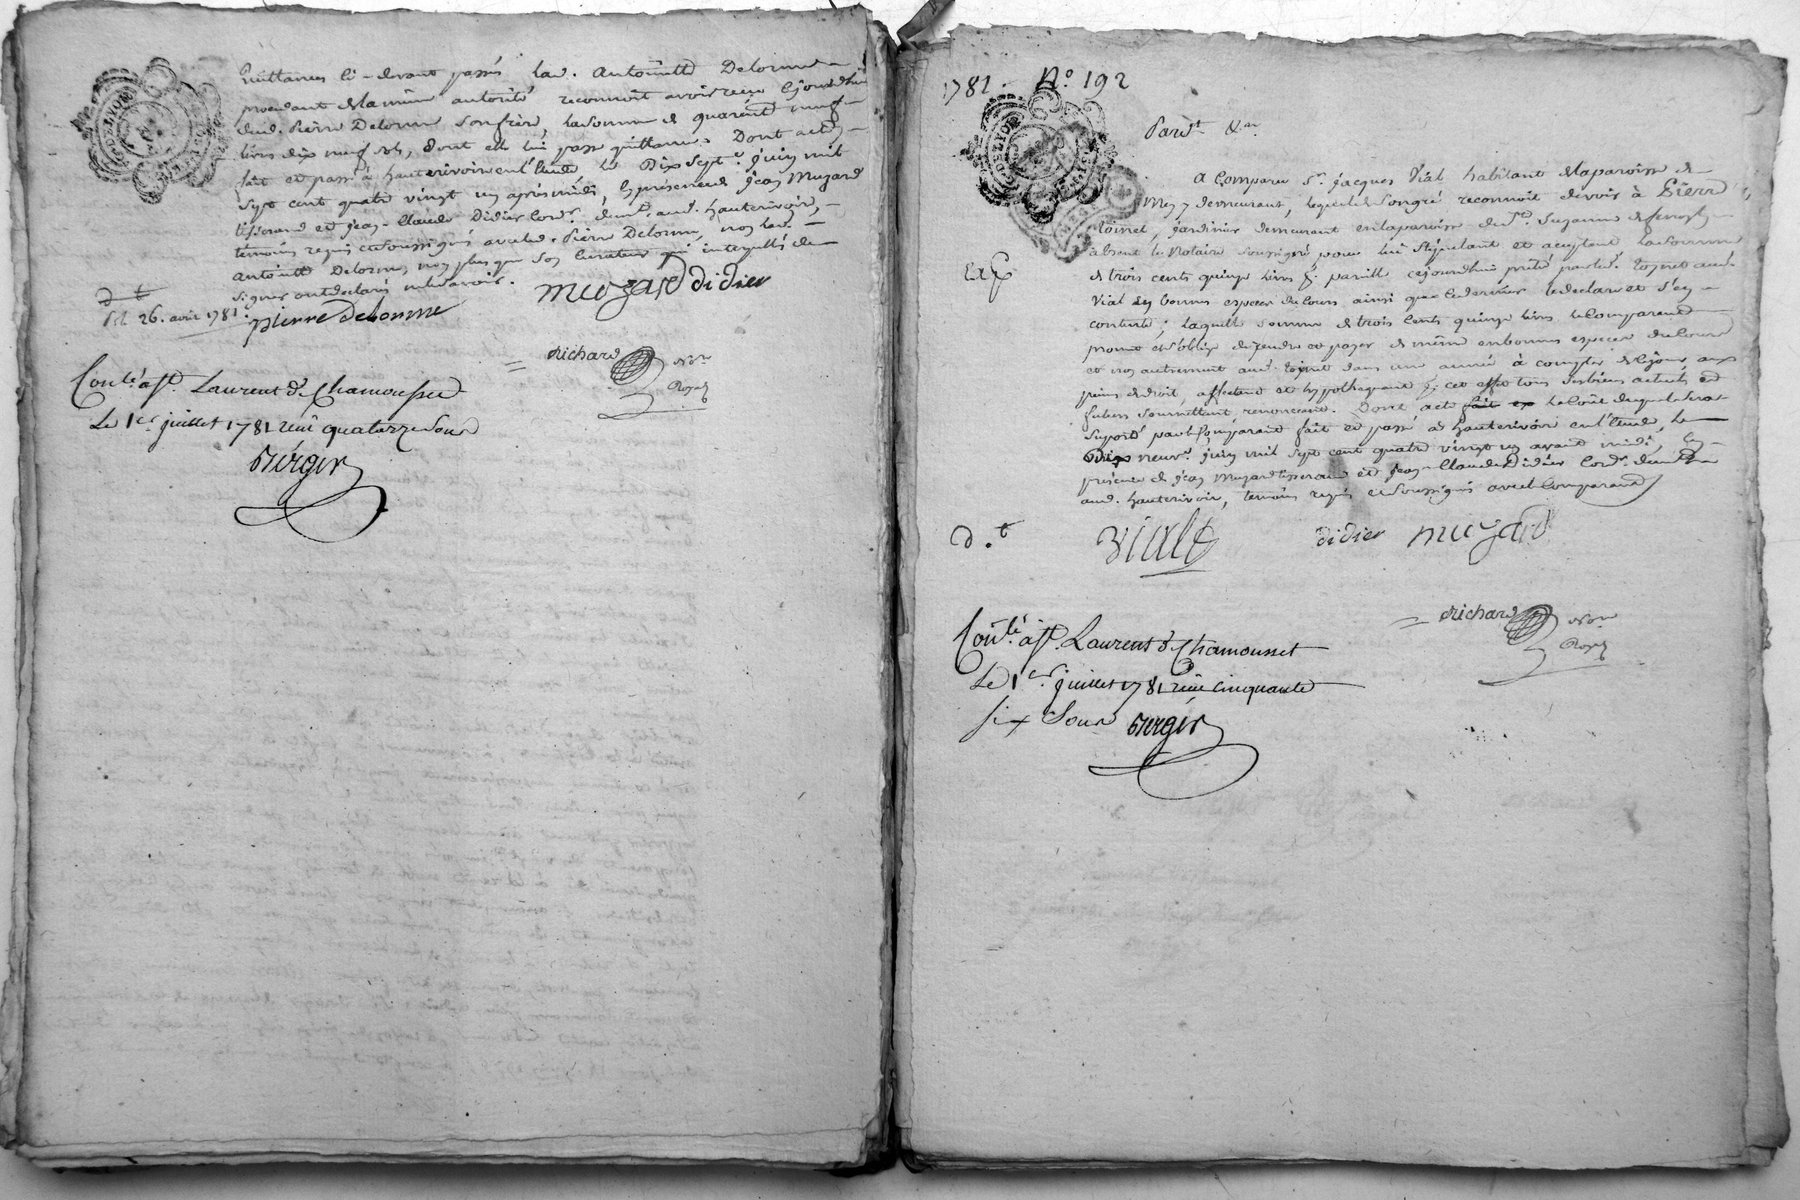 quittances ci-devant passés lad. Antoinette Delorme
procédant de la même autorité reconnoit avoir reçu ce jourd'hui
dud. Pierre Delorme son frère, la somme de quarente neuf
livres dix neuf sols, dont elle lui passe quittance. Dont acte
fait et passé à hauterivoire en l'étude le Dix sept.e juin mil
sept cent quatre vingt un après midi, En présence de jean Muzard
tisserand et jean-Claude Didier Cord.r dem.t aud. hauterivoire,
temoins requis et soussignés avec led. Pierre Delorme, non lad.
Antoinette Delorme, non plus que son Curateur qui interpellés de
signer ont déclaré ne le savoir.
muzard didier
d t
26. avril 1781.
pierre delorme
richard No.re
Royal
Con.lé à S.t Laurent de Chamousset
Le 1er juillet 1781 reçu quatorze sous
Verger
1781. N.o 192
DE LYON
Pard.t &a.
A Comparu S.r jacques Vial habitant de la paroisse de
Meys y demeurant, lequel de son gré reconnoit devoir à Pierre
Toinet, jardinier demeurant en la paroisse de S.te Suzanne
absent le Notaire soussigné pour lui stipulant et acceptant la somme
de trois cents quinze livres p. pareille ce jourd'hui prêté par led. Toinet aud.
Exp
Vial En bonnes especes du cours ainsi que ce dernier le declare et s'en
contente; laquelle somme de trois cents quinze livres le Comparant
promet et s'oblige de rendre et payer de même en bonnes especes du Cours
et non autrement aud. Toinet dans un année à compter de ce jour aux
peines de droit, affectant et hypothequant p. cet effet tous ses biens actuels et
futurs soumettant renonceant. Dont acte fait et le Coût duquel sera
suporté par le Comparant fait et passé à Hauterivoire en l'étude, le
Dix neuv.e juin mil sept cent quatre vingt un avant midi, En
présence de jean Muzard tisserand et jean-Claude Didier Cord.r dem.t
aud. hauterivoire, temoins requis et soussignés avec le Comparant
d. t
Viale didier muzard
richard No.re
Royal
Con.lé à S.t Laurent de Chamousset
Le 1er juillet 1781 reçu cinquante
six Sous Verger